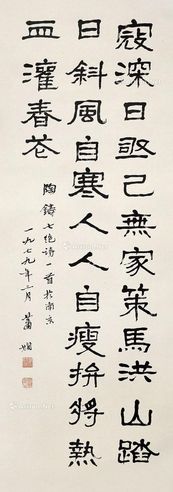 寇深日亟已無家策馬洪山踏
日斜風自寒人人自瘦拚將熱
血灌春花
陶鑄七絕詩一首於南京
一九七九年月 蕭嫻